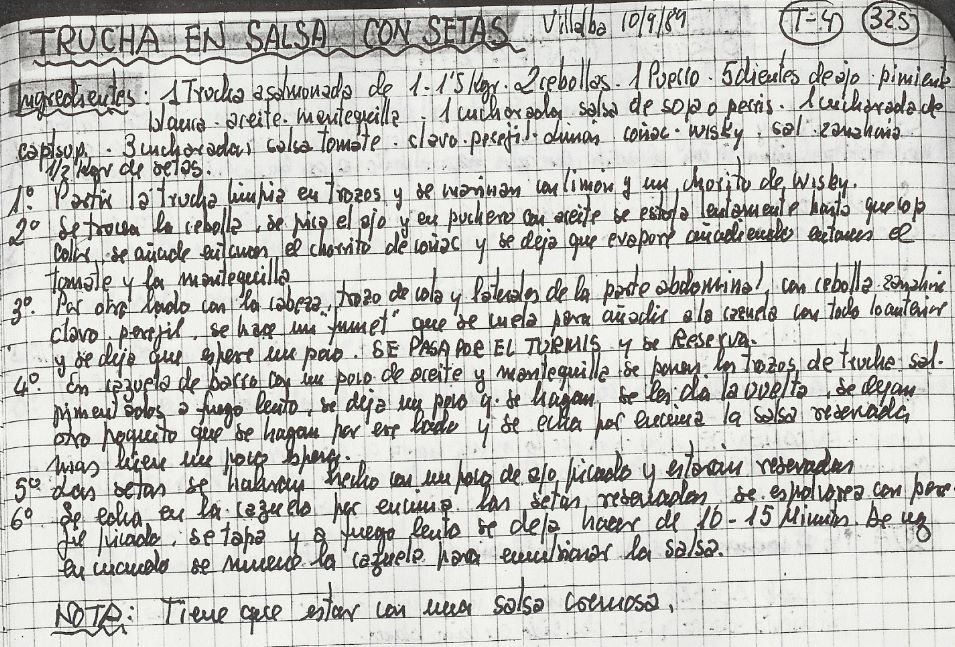 TRUCHA EN SALSA CON SETAS Villalba 10/9/89 T-4 325
Ingredientes: 1 Trucha asalmonada de 1-1'5 Kgr. 2 cebollas. 1 Puerro. 5 dientes de ajo. pimienta
blanca. aceite. mantequilla. 1 cucharada salsa de soja o perris. 1 cucharada de
capsup. 3 cucharadas salsa tomate. clavo. perejil. coñac. wisky. sal. zanahoria
1/2 Kgr de setas.
1º. Partir la trucha limpia en trozos y se marinan con limón y un chorito de wisky.
2º Se trocea la cebolla, se pica el ajo y en puchero con aceite se estofa lentamente hasta que coja
color, se añade entonces el chorrito de coñac y se deja que evapore añadiendo entonces el
tomate y la mantequilla
3º. Por otro lado con la cabeza, trozo de cola y laterales de la parte abdominal, con cebolla zanahoria
clavo, perejil, se hace un "fumet" que se cuela para añadir a la cazuela con todo lo anterior
y se deja que espere un poco. SE PASA POR EL TURMIS y se Reserva.
4º. En cazuela de barro con un poco de aceite y mantequilla se ponen los trozos de trucha sal-
pimentados a fuego lento, se deja un poco q. se hagan, se les da la vuelta, se dejan
otro poquito que se hagan por ese lado y se echa por encima la salsa reservada
mas bien un poco espesa.
5º Las setas se habrán hecho con un poco de ajo picado y estarán reservadas
6º Se echa en la cazuela por encima las setas reservadas se espolvorea con pere-
jil picado, se tapa y a fuego lento se deja hacer de 10-15 Minutos. De vez
en cuando se mueve la cazuela para emulsionar la salsa.
NOTA: Tiene que estar con una salsa cremosa.